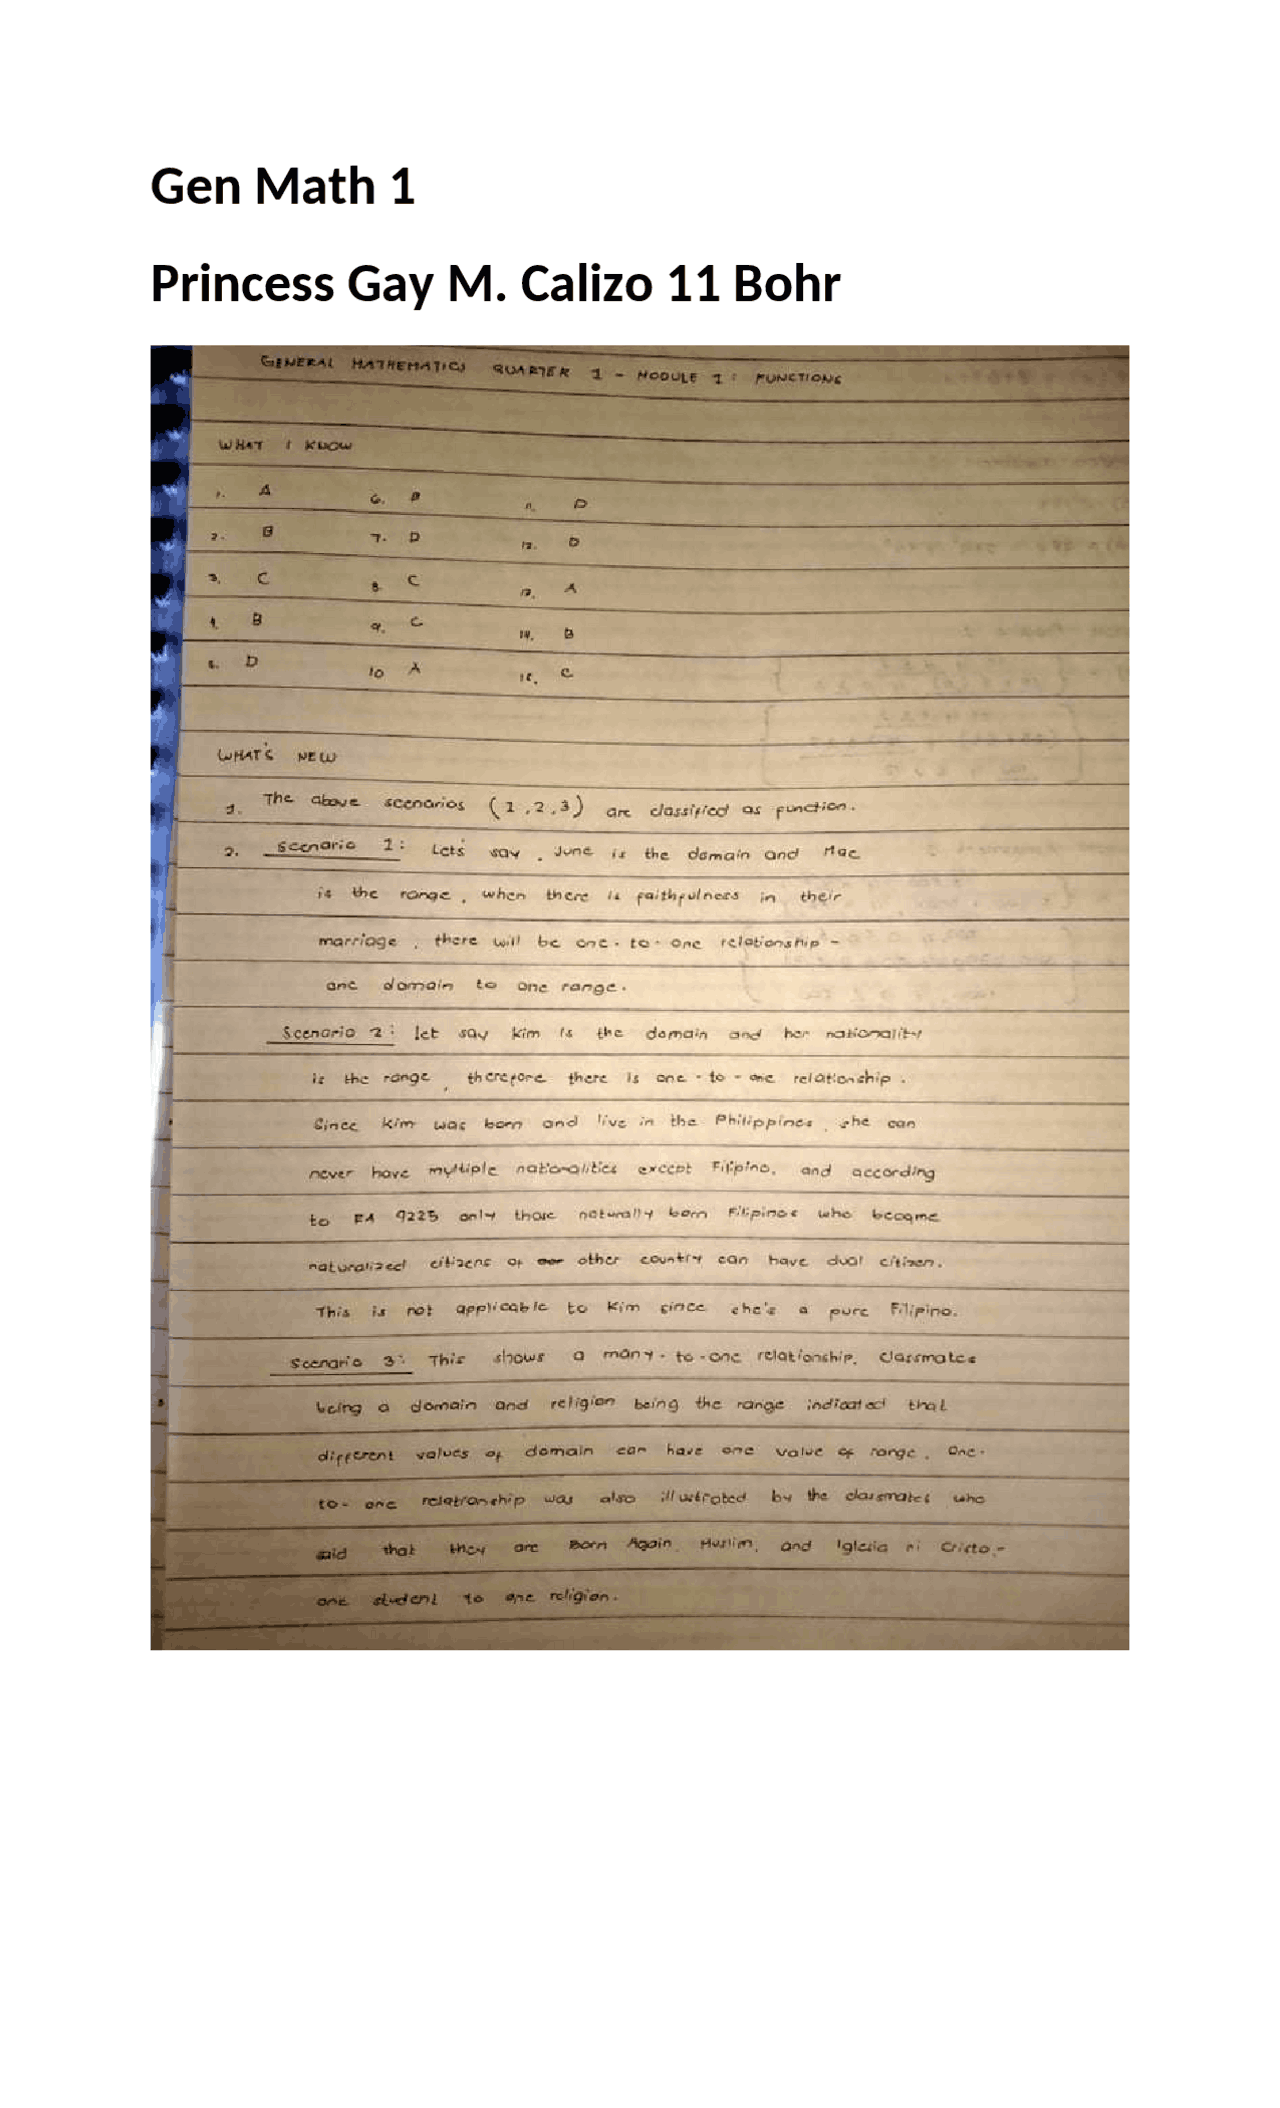 Gen Math 1
Princess Gay M. Calizo 11 Bohr
GENERAL MATHEMATICS QUARTER 1 - MODULE 1: FUNCTIONS
WHAT I KNOW
1. A 6. B 11. D
2. B 7. D 12. D
3. C 8. C 13. A
4. B 9. C 14. B
5. D 10 A 15. C
WHAT'S NEW
1. The above scenarios (1,2,3) are classified as function.
2. Scenario 1: Lets' say, June is the domain and Mae
is the range, when there is faithfulness in their
marriage, there will be one-to-one relationship -
one domain to one range.
Scenario 2: let say Kim is the domain and her nationality
is the range, therefore there is one-to-one relationship.
Since Kim was born and live in the Philippines, she can
never have multiple nationalities except Filipino, and according
to RA 9225 only those naturally born Filipinos who become
naturalized citizens of other country can have dual citizen.
This is not applicable to Kim since she's a pure Filipino.
Scenario 3: This shows a many-to-one relationship. Classmates
being a domain and religion being the range indicated that
different values of domain can have one value of range. One-
to-one relationship was also illustrated by the classmates who
said that they are Born Again, Muslim, and Iglesia ni Cristo -
one student to one religion.